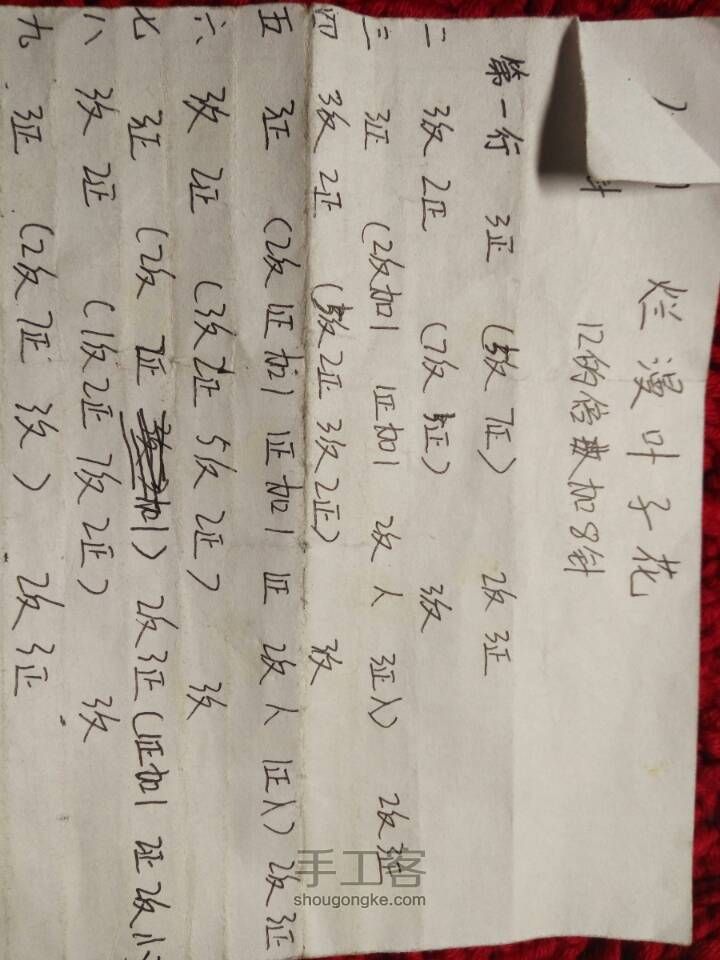 烂漫叶子花
12的倍数加8针
第一行 3正 (5反 7正) 2反 3正
二 3反 2正 (7反 5正) 3反
三 3正 (2反加1 1正加1 2反 人 3正入) 2反 3正
四 3反 2正 (5反2正 3反2正) 3反
五 3正 (2反 1正 加1 1正 加1 1正 2反 人 1正 入) 2反 3正
六 3反 2正 (3反 2正 5反 2正) 3反
七 3正 (2反 7正 加1) 2反 3正 (1正 加1 1正 2反
八 3反 2正 (1反 2正 7反 2正) 3反
九 3正 (2反 7正 3反) 2反 3正
手工客
shougongke.com